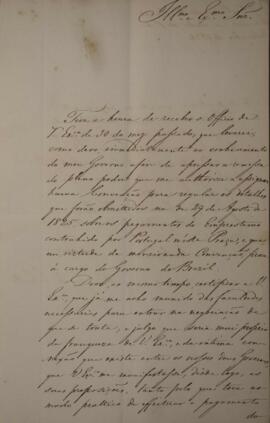 Illmo e Exmo Snr.
Tive a honra de receber o Officio de
V. Exa de 30 do mez passado, que levarei,
como devo, immediatamente ao conhecimento
do meu Governo afim de apressar a remessa
do pleno poder que me authorize a assignar
huma Convenção para regular os detalhes
que forão omittidos na de 29 de Agosto de
1825 sobre os pagamentos do Emprestimo
contrahido por Portugal nesta Praça, e que
em virtude da mencionada Convenção ficou
à cargo do Governo do Brazil.
Devo, ao mesmo tempo certificar a V.
Exa, que já me acho munido das faculdades
necessarias para entrar na negociação de
que se trata, e julgo que seria mui proprio
da franqueza de V. Exa, e da intima
que existe entre os nossos dous Governos,
que V. Exa me manifestasse, desde logo, as
suas proposições, tanto pelo que toca ao
modo pratico de effectuar o pagamento
do